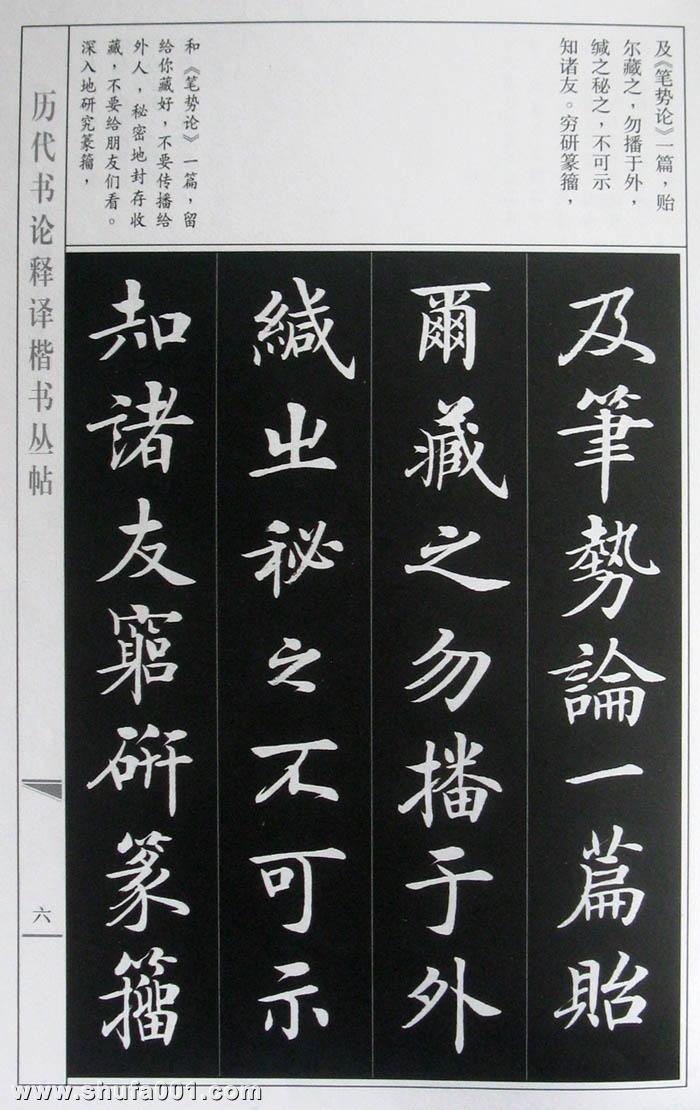 及《笔势论》一篇，贻
尔藏之，勿播于外，
缄之秘之，不可示
知诸友。穷研篆籀，
和《笔势论》一篇，留
给你藏好，不要传播给
外人，秘密地封存收
藏，不要给朋友们看。
深入地研究篆籀，
及筆勢論一篇貽
爾藏之勿播于外
緘之秘之不可示
知諸友窮研篆籀
历代书论释译楷书丛帖
六
www.shufa001.com